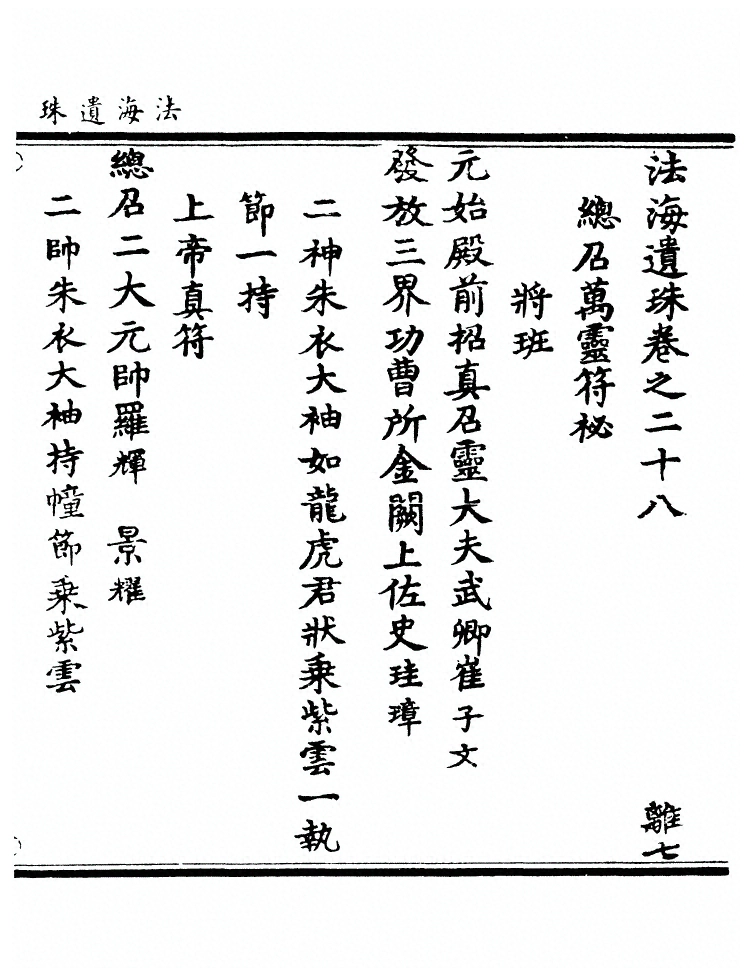 法海遺珠
法海遺珠卷之二十八　離七
總召萬靈符祕
將班
元始殿前招真召靈大夫武卿崔子文
發放三界功曹所金闕上佐史珪璋
二神朱衣大袖如龍虎君狀乘紫雲一執
節一持
上帝真符
總召二大元帥羅輝　景耀
二帥朱衣大袖持幢節乘紫雲